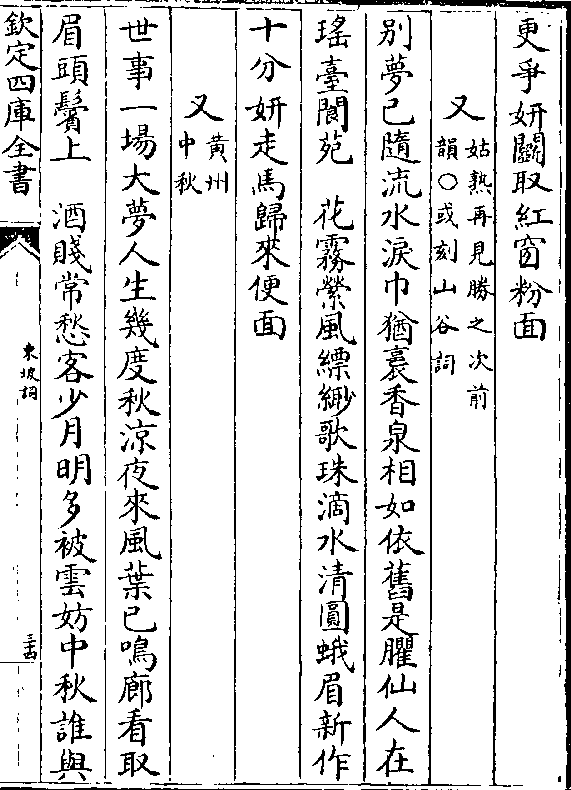 更爭妍鬬取紅窗粉面
又
姑熟再見勝之次前
韻○或刻山谷詞
别夢已隨流水淚巾猶裛香泉相如依舊是臞仙人在
瑤臺閬苑　花霧縈風縹緲歌珠滴水清圓蛾眉新作
十分妍走馬歸來便面
又
黄州
中秋
世事一場大夢人生幾度秋涼夜來風葉已鳴廊看取
眉頭鬢上　酒賤常愁客少月明多被雲妨中秋誰與
欽定四庫全書
東坡詞
三十四